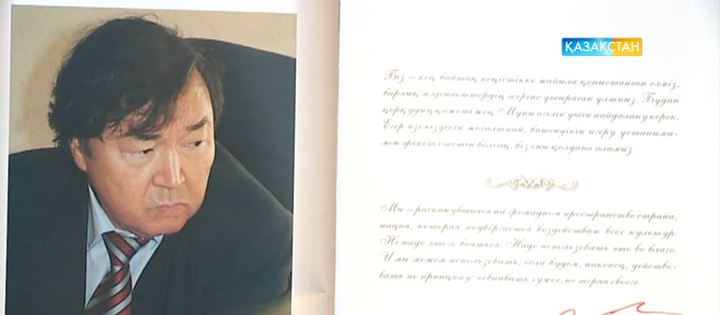 ҚАЗАҚСТАН
Біз – кең байтақ кеңістікке жайыла қоныстанған елміз,
барлық мәдениеттердің әсеріне ұшыраған ұлтпыз. Бұдан
қорқудың қажеті жоқ. Мұны игілік үшін пайдалану керек.
Егер өзіміздікін жоғалтпай, бөтендікін игеру ұстанымы-
мен әрекет ететін болсақ, біз оны қолдана аламыз.
Мы – раскинувшаяся на громадном пространстве страна,
нация, которая подвергается воздействию всех культур.
Но надо этого бояться. Надо использовать это во благо.
И мы можем использовать, если будем, наконец, действо-
вать по принципу: осваивать чужое, не теряя своего.